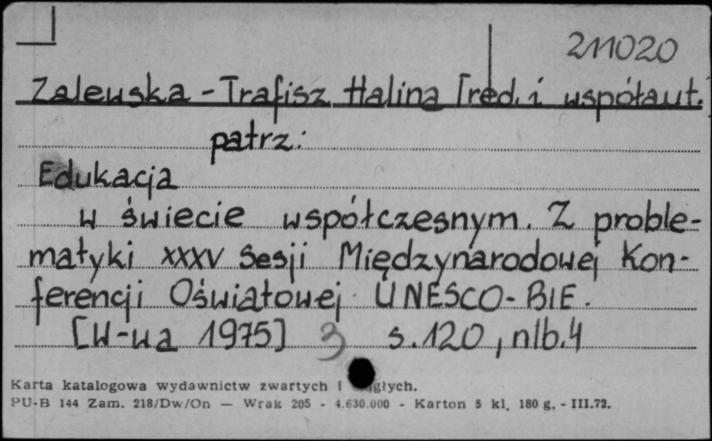 211020
Zalewska - Trafisz Halina [red. i współaut.
patrz:
Edukacja
w świecie współczesnym. Z proble-
matyki XXXV Sesji Międzynarodowej Kon-
ferencji Oświatowej UNESCO-BIE.
[W-wa 1975] 3 s. 120, nlb. 4
Karta katalogowa wydawnictw zwartych i ciągłych.
PU-B 144 Zam. 218/Dw/On — Wrak 205 - 4.630.000 - Karton 5 kl. 180 g. - III.72.